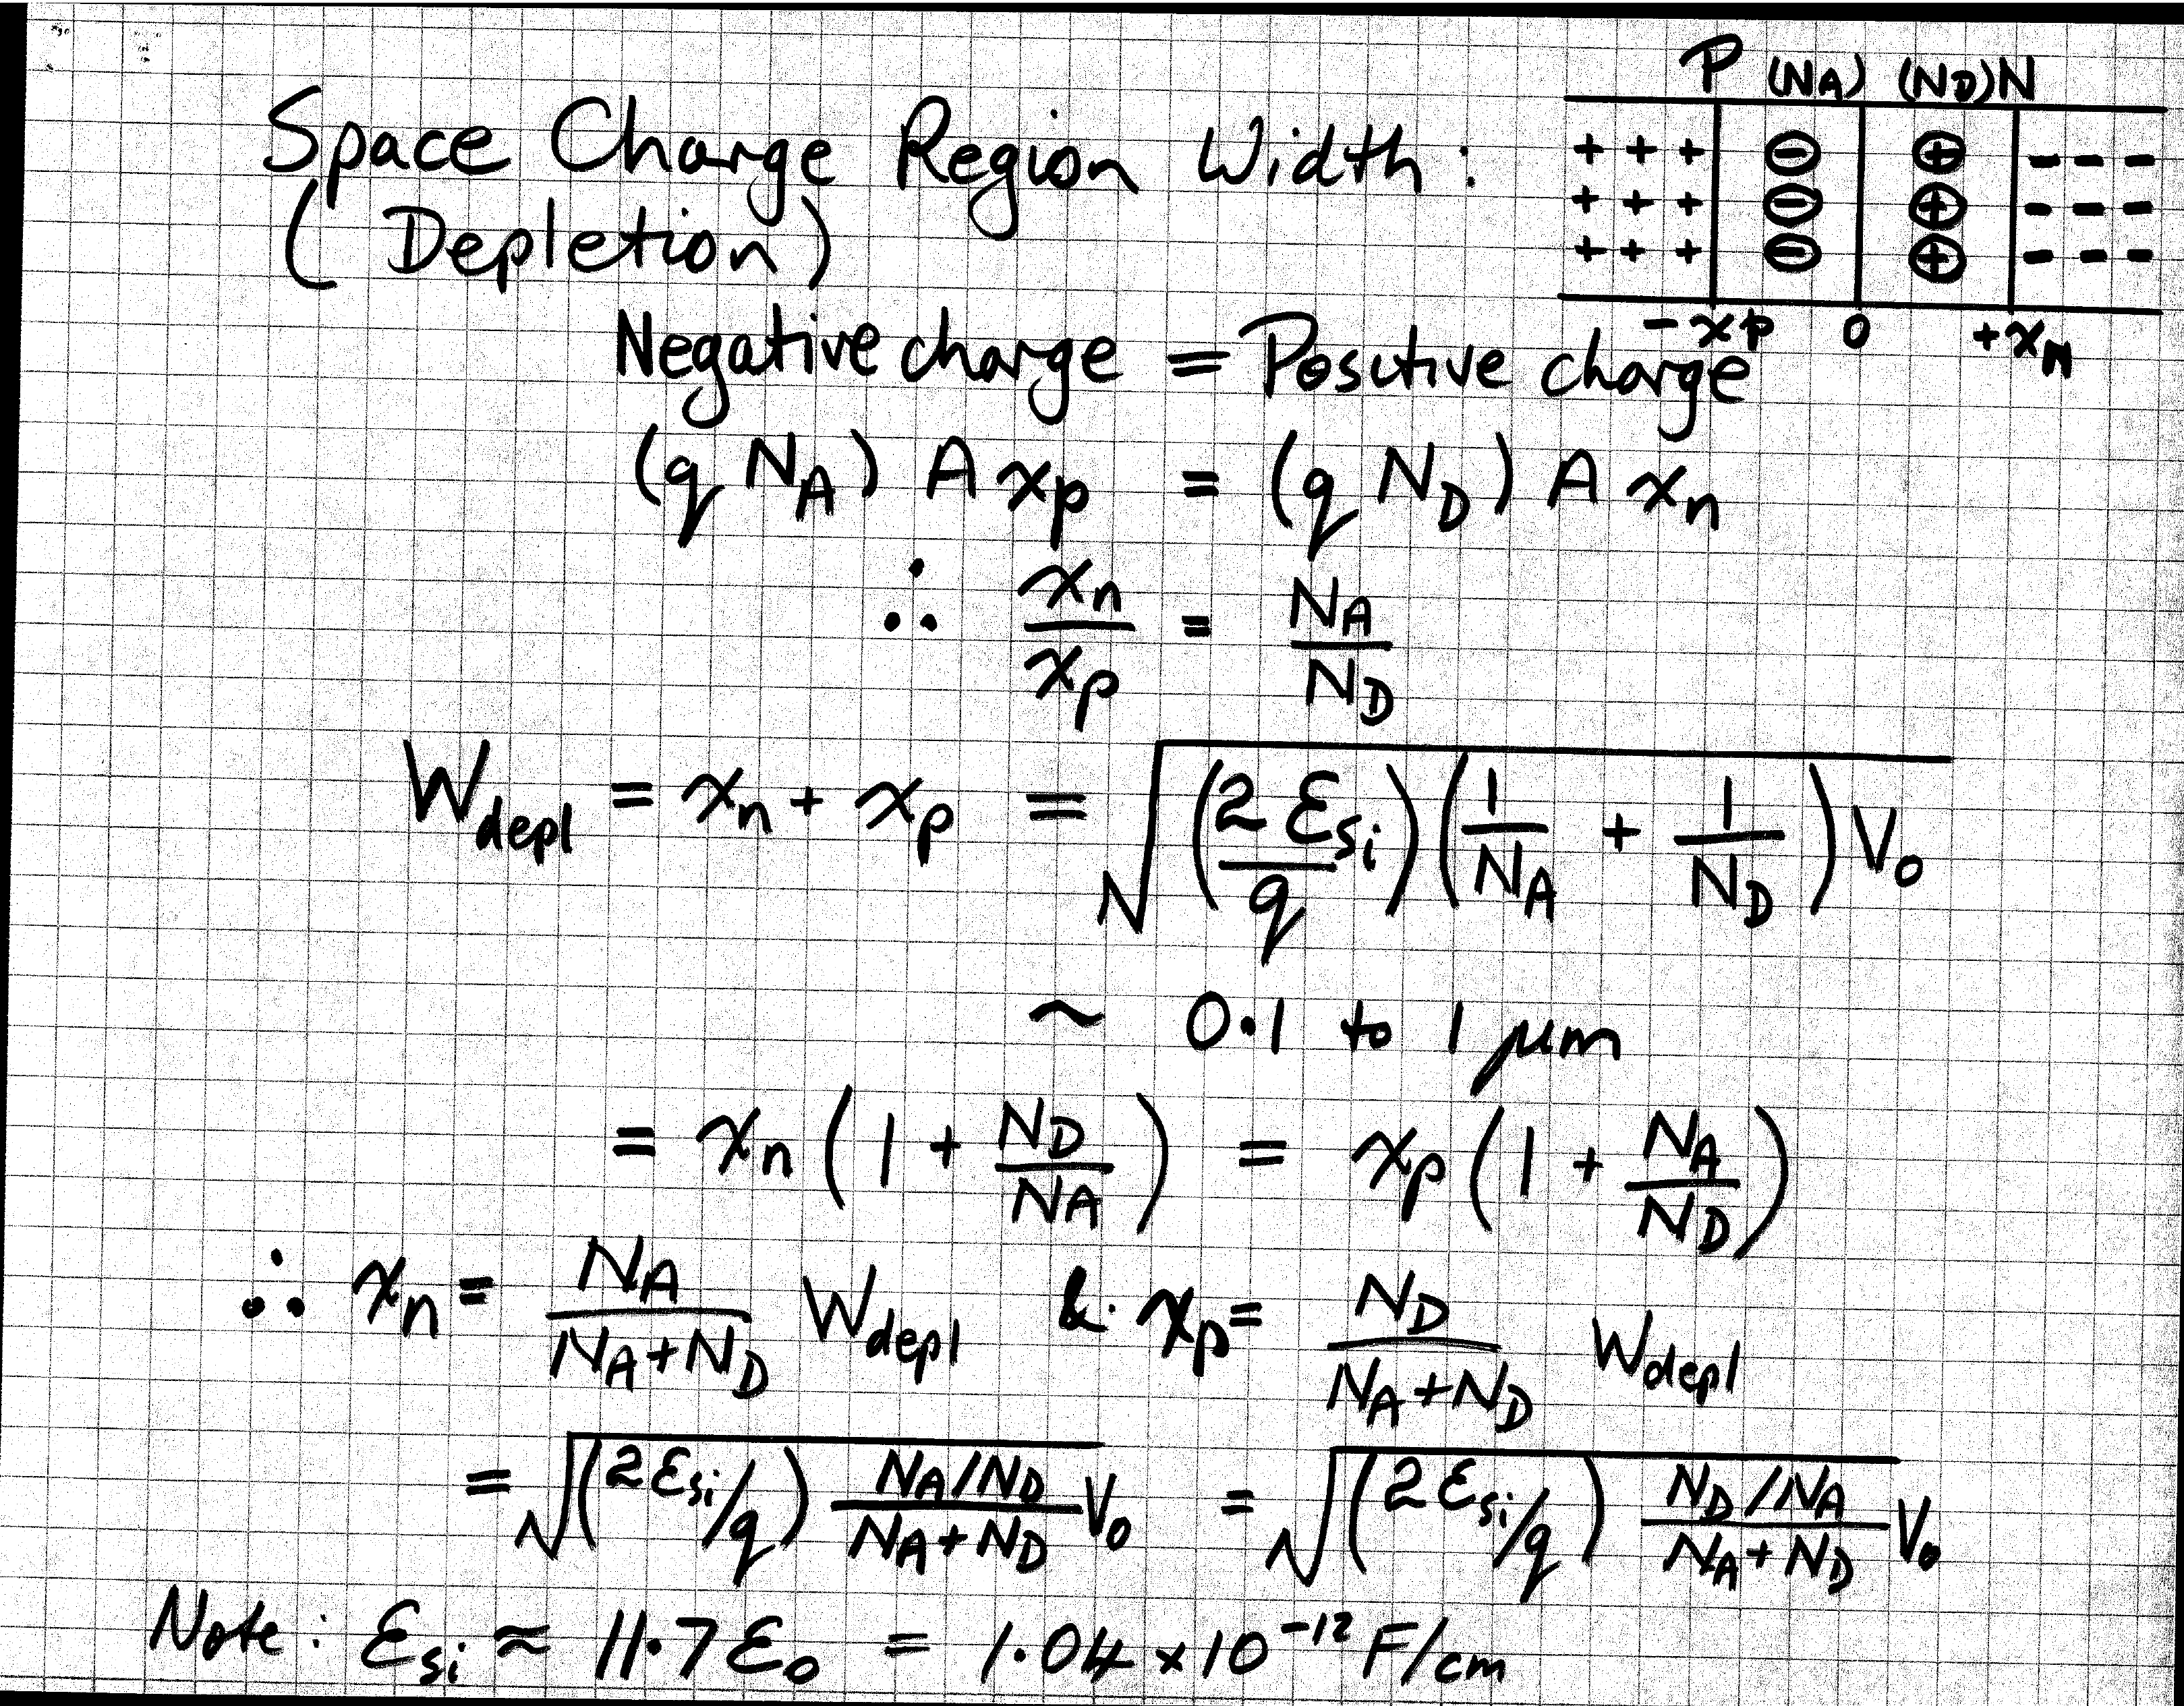 P (NA) (ND) N
Space Charge Region Width :
+ + + ⊖ ⊕ - - -
+ + + ⊖ ⊕ - - -
+ + + ⊖ ⊕ - - -
(Depletion)
-xp 0 +xn
Negative charge = Positive charge
(q N_A) A x_p = (q N_D) A x_n
∴ x_n / x_p = N_A / N_D
W_depl = x_n + x_p = √((2 ε_si / q) (1/N_A + 1/N_D) V_0)
~ 0.1 to 1 μm
= x_n (1 + N_D/N_A) = x_p (1 + N_A/N_D)
∴ x_n = N_A/(N_A+N_D) W_depl & x_p = N_D/(N_A+N_D) W_depl
= √((2ε_si/q) (N_A/N_D)/(N_A+N_D) V_0) = √((2ε_si/q) (N_D/N_A)/(N_A+N_D) V_0)
Note : ε_si ≈ 11.7 ε_0 = 1.04 × 10^-12 F/cm